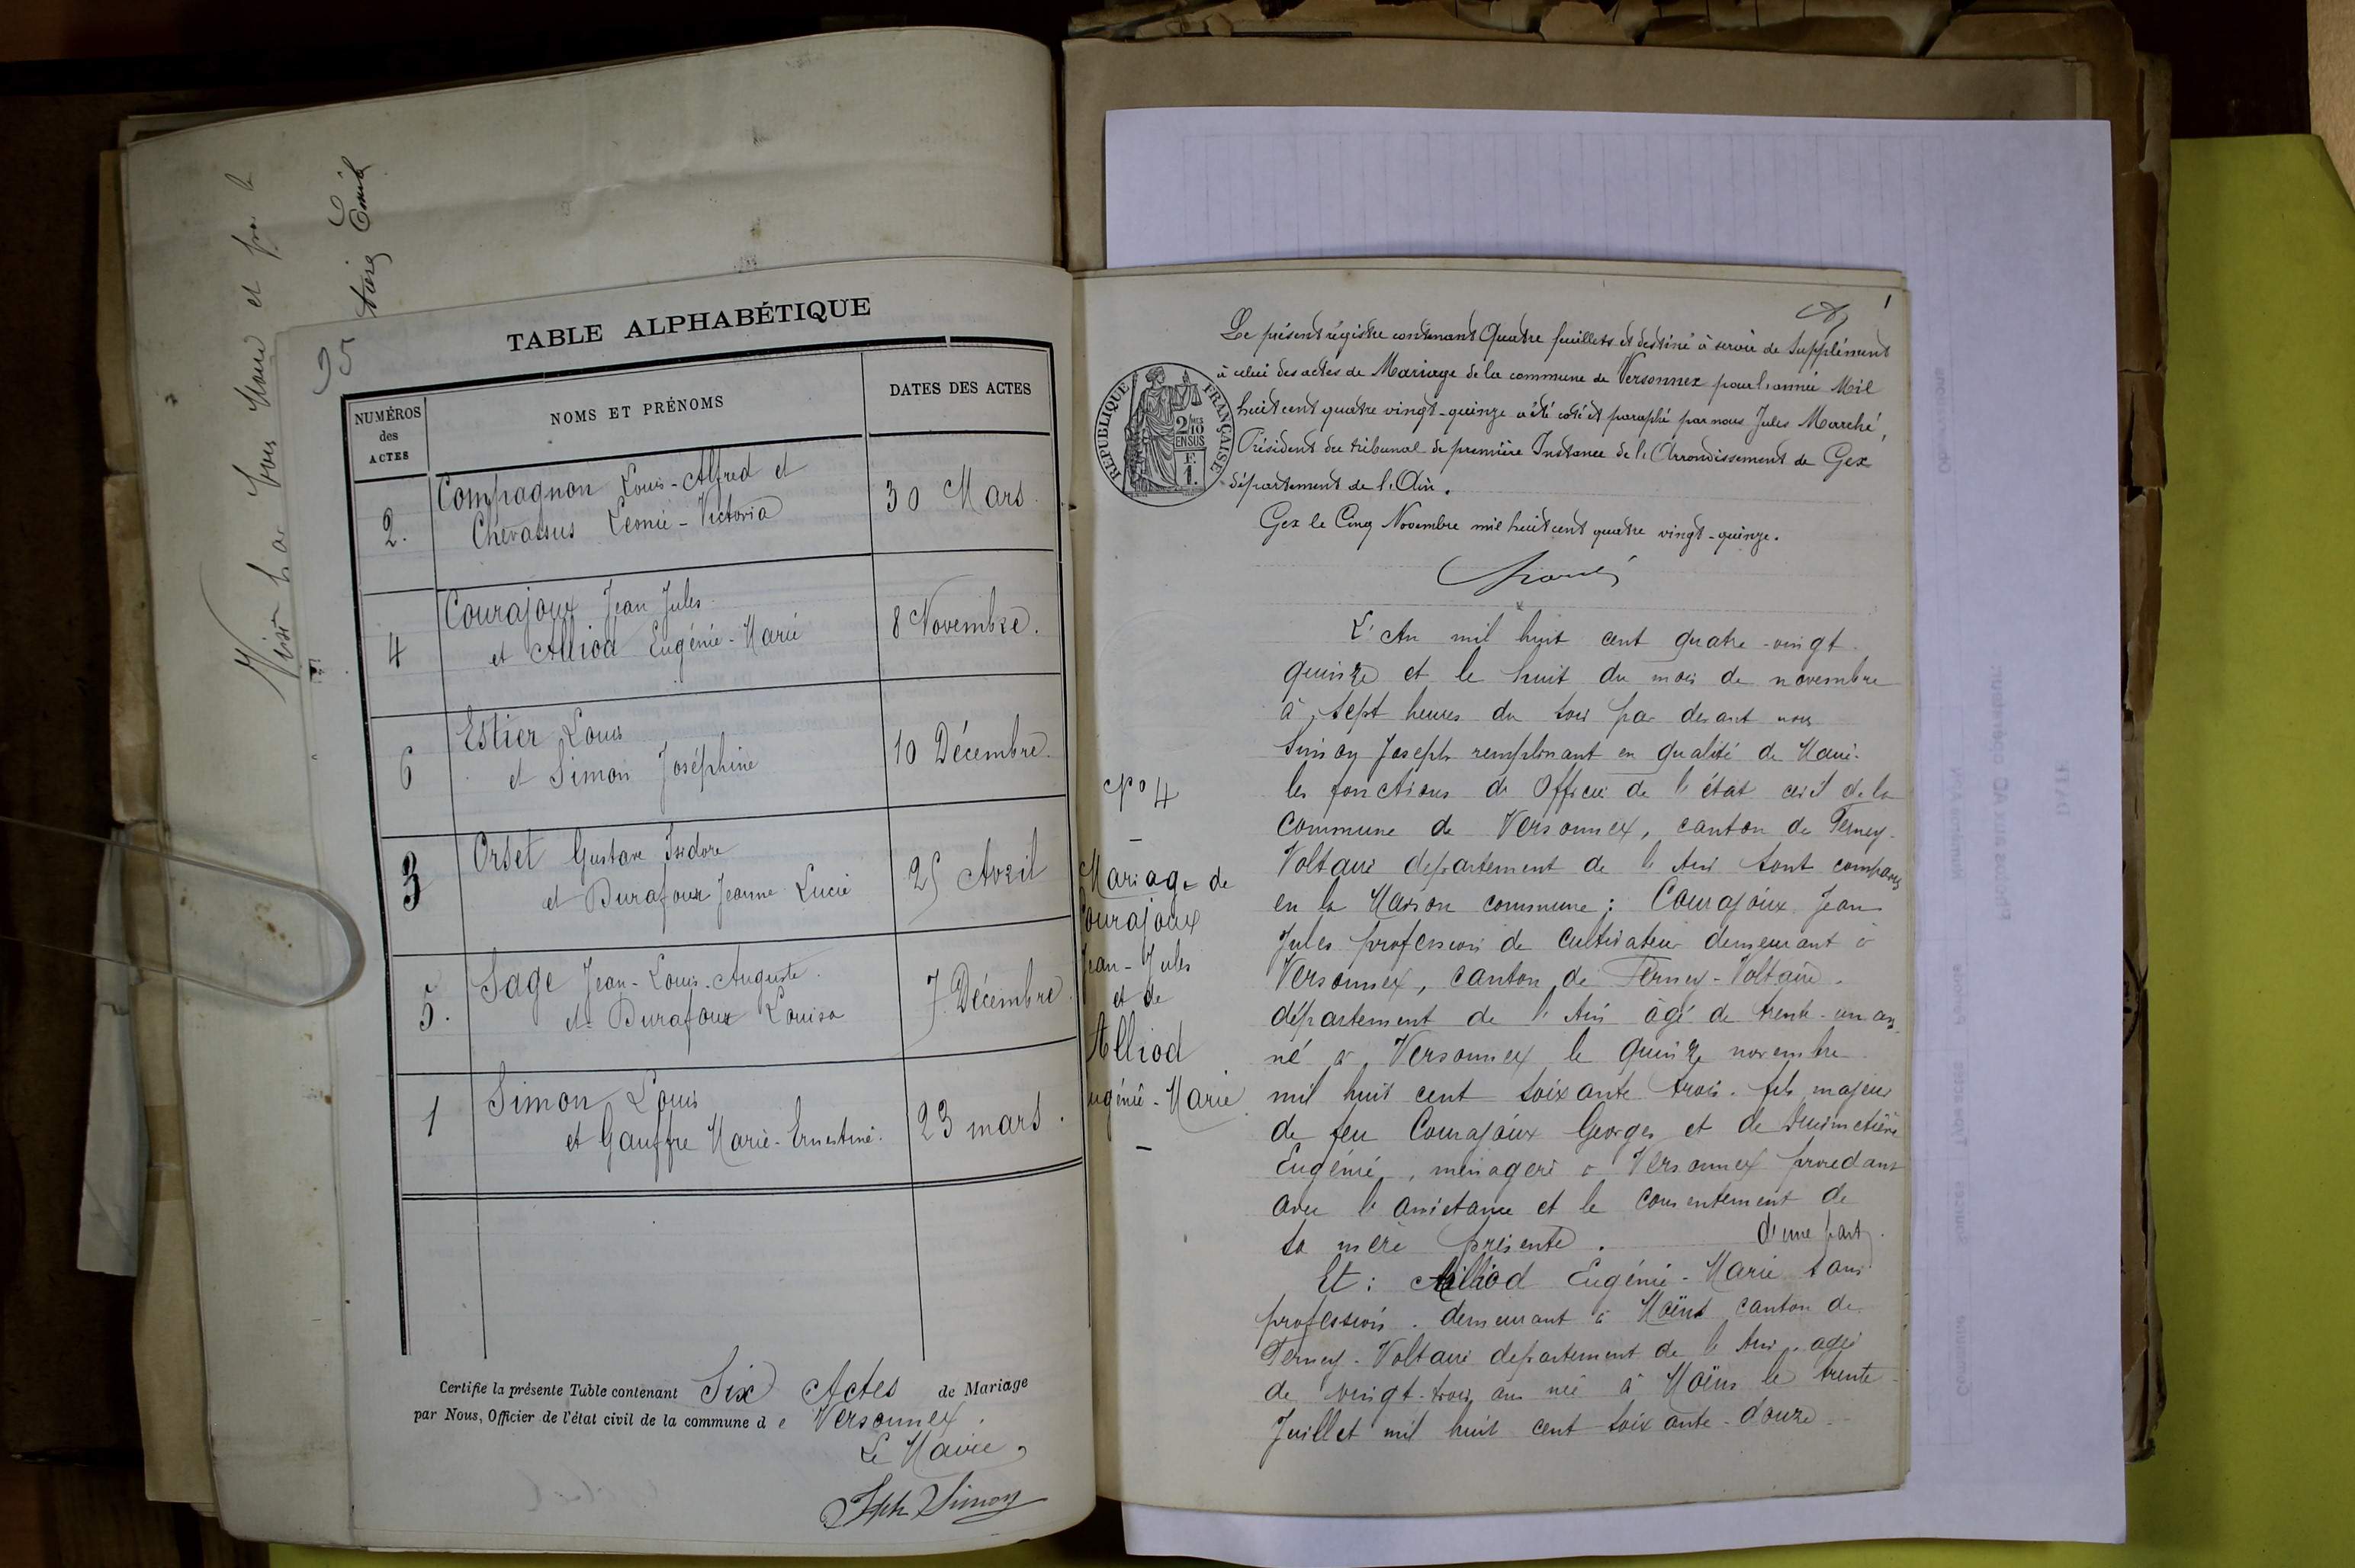 95
TABLE ALPHABÉTIQUE
NUMÉROS des ACTES
NOMS ET PRÉNOMS
DATES DES ACTES
2. Compagnon Louis-Alfred et
Chevassus Léonie-Victoria
30 Mars.
4 Courajoux Jean Jules
et Alliod Eugénie-Marie
8 Novembre.
6 Estier Louis
et Simon Joséphine
10 Décembre.
3 Orset Gustave Isidore
et Durafour Jeanne Lucie
25 Avril
5. Sage Jean-Louis-Auguste.
et Durafour Louisa
7 Décembre.
1 Simon Louis
et Gauffre Marie-Ernestine.
23 mars.
Certifie la présente Table contenant Six Actes de Mariage
par Nous, Officier de l'état civil de la commune de Versonnex.
Le Maire,
Jph Simon
1
Le présent régistre contenant Quatre feuillets et destiné à servir de Supplément
à celui des actes de Mariage de la commune de Versonnex pour l'année Mil
huit cent quatre vingt-quinze a été coté et paraphé par nous Jules Marché,
Président du tribunal de première Instance de l'Arrondissement de Gex
département de l'Ain.
Gex le Cinq Novembre mil huit cent quatre vingt-quinze.
RÉPUBLIQUE FRANÇAISE
2/10 EN SUS
F. 1.
No 4
Mariage de
Courajoux
Jean-Jules
et de
Alliod
Eugénie-Marie
L'An mil huit cent quatre-vingt
quinze et le huit du mois de novembre
à sept heures du soir par devant nous
Simon Joseph remplissant en qualité de Maire
les fonctions de Officier de l'état civil de la
commune de Versonnex, canton de Ferney-
Voltaire departement de l'Ain sont comparus
en la Maison commune: Courajoux Jean
Jules profession de cultivateur demeurant à
Versonnex, canton de Ferney-Voltaire.
département de l'Ain âgé de trente-un ans
né à Versonnex le quinze novembre
mil huit cent soixante trois. fils majeur
de feu Courajoux Georges et de
Eugénie, ménagère à Versonnex procedant
avec l'assistance et le consentement de
sa mère présente. d'une part.
Et: Alliod Eugénie-Marie sans
profession. demeurant à Moëns canton de
Ferney-Voltaire departement de l'Ain, agée
de vingt-trois ans née à Moëns le trente
Juillet mil huit cent soixante-douze